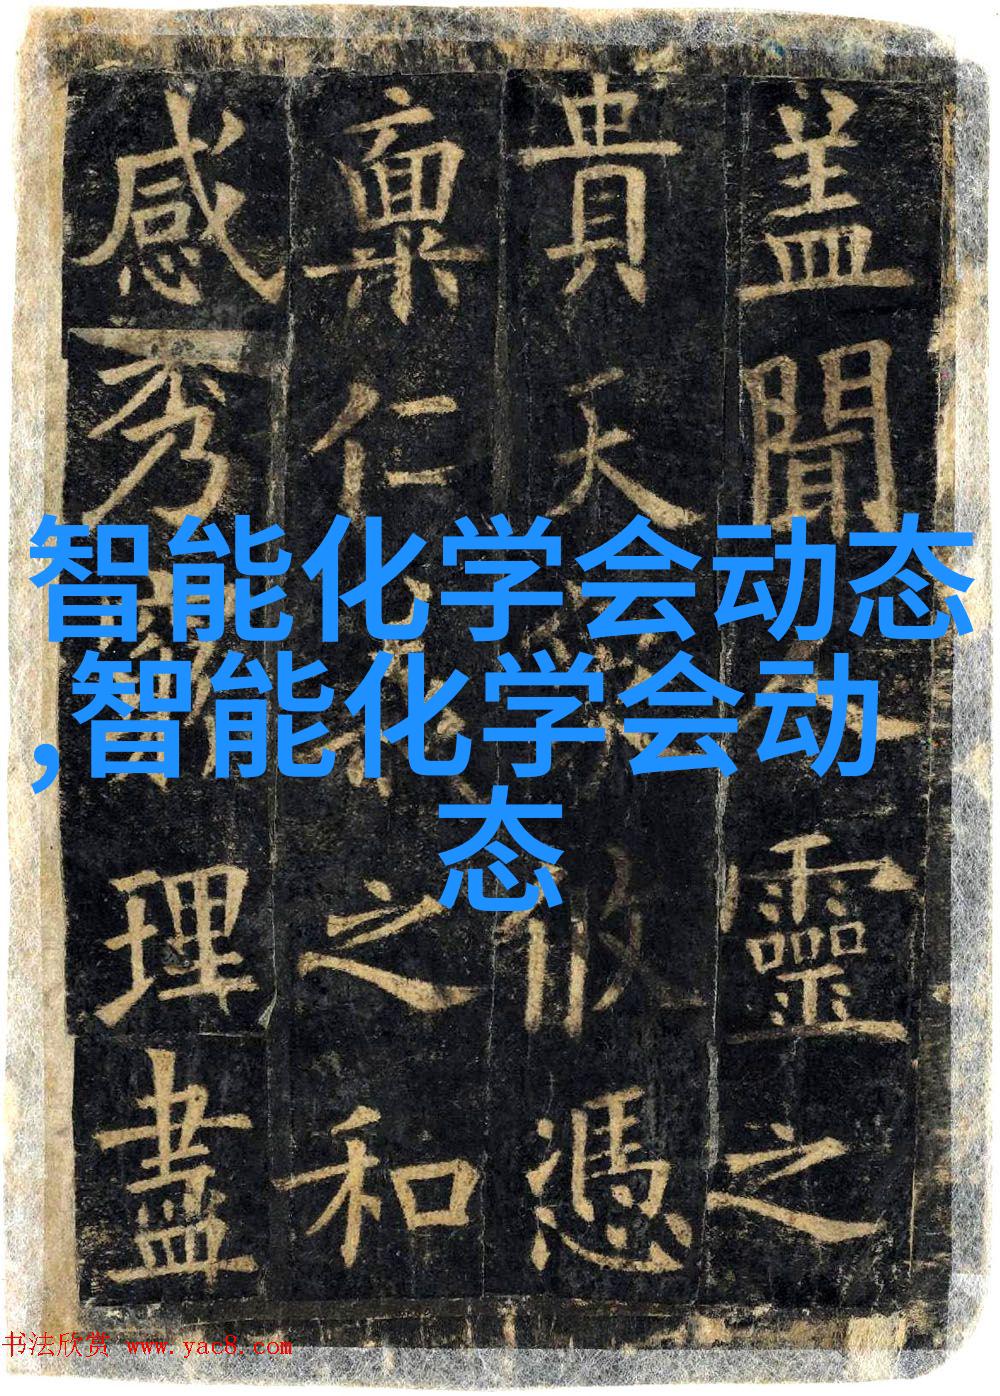 智能化学会动态
,智能化学会动
态
盖聞人靈之
貴天攸憑
稟仁之和
感秀理盡
书法欣赏 www.yac8.com